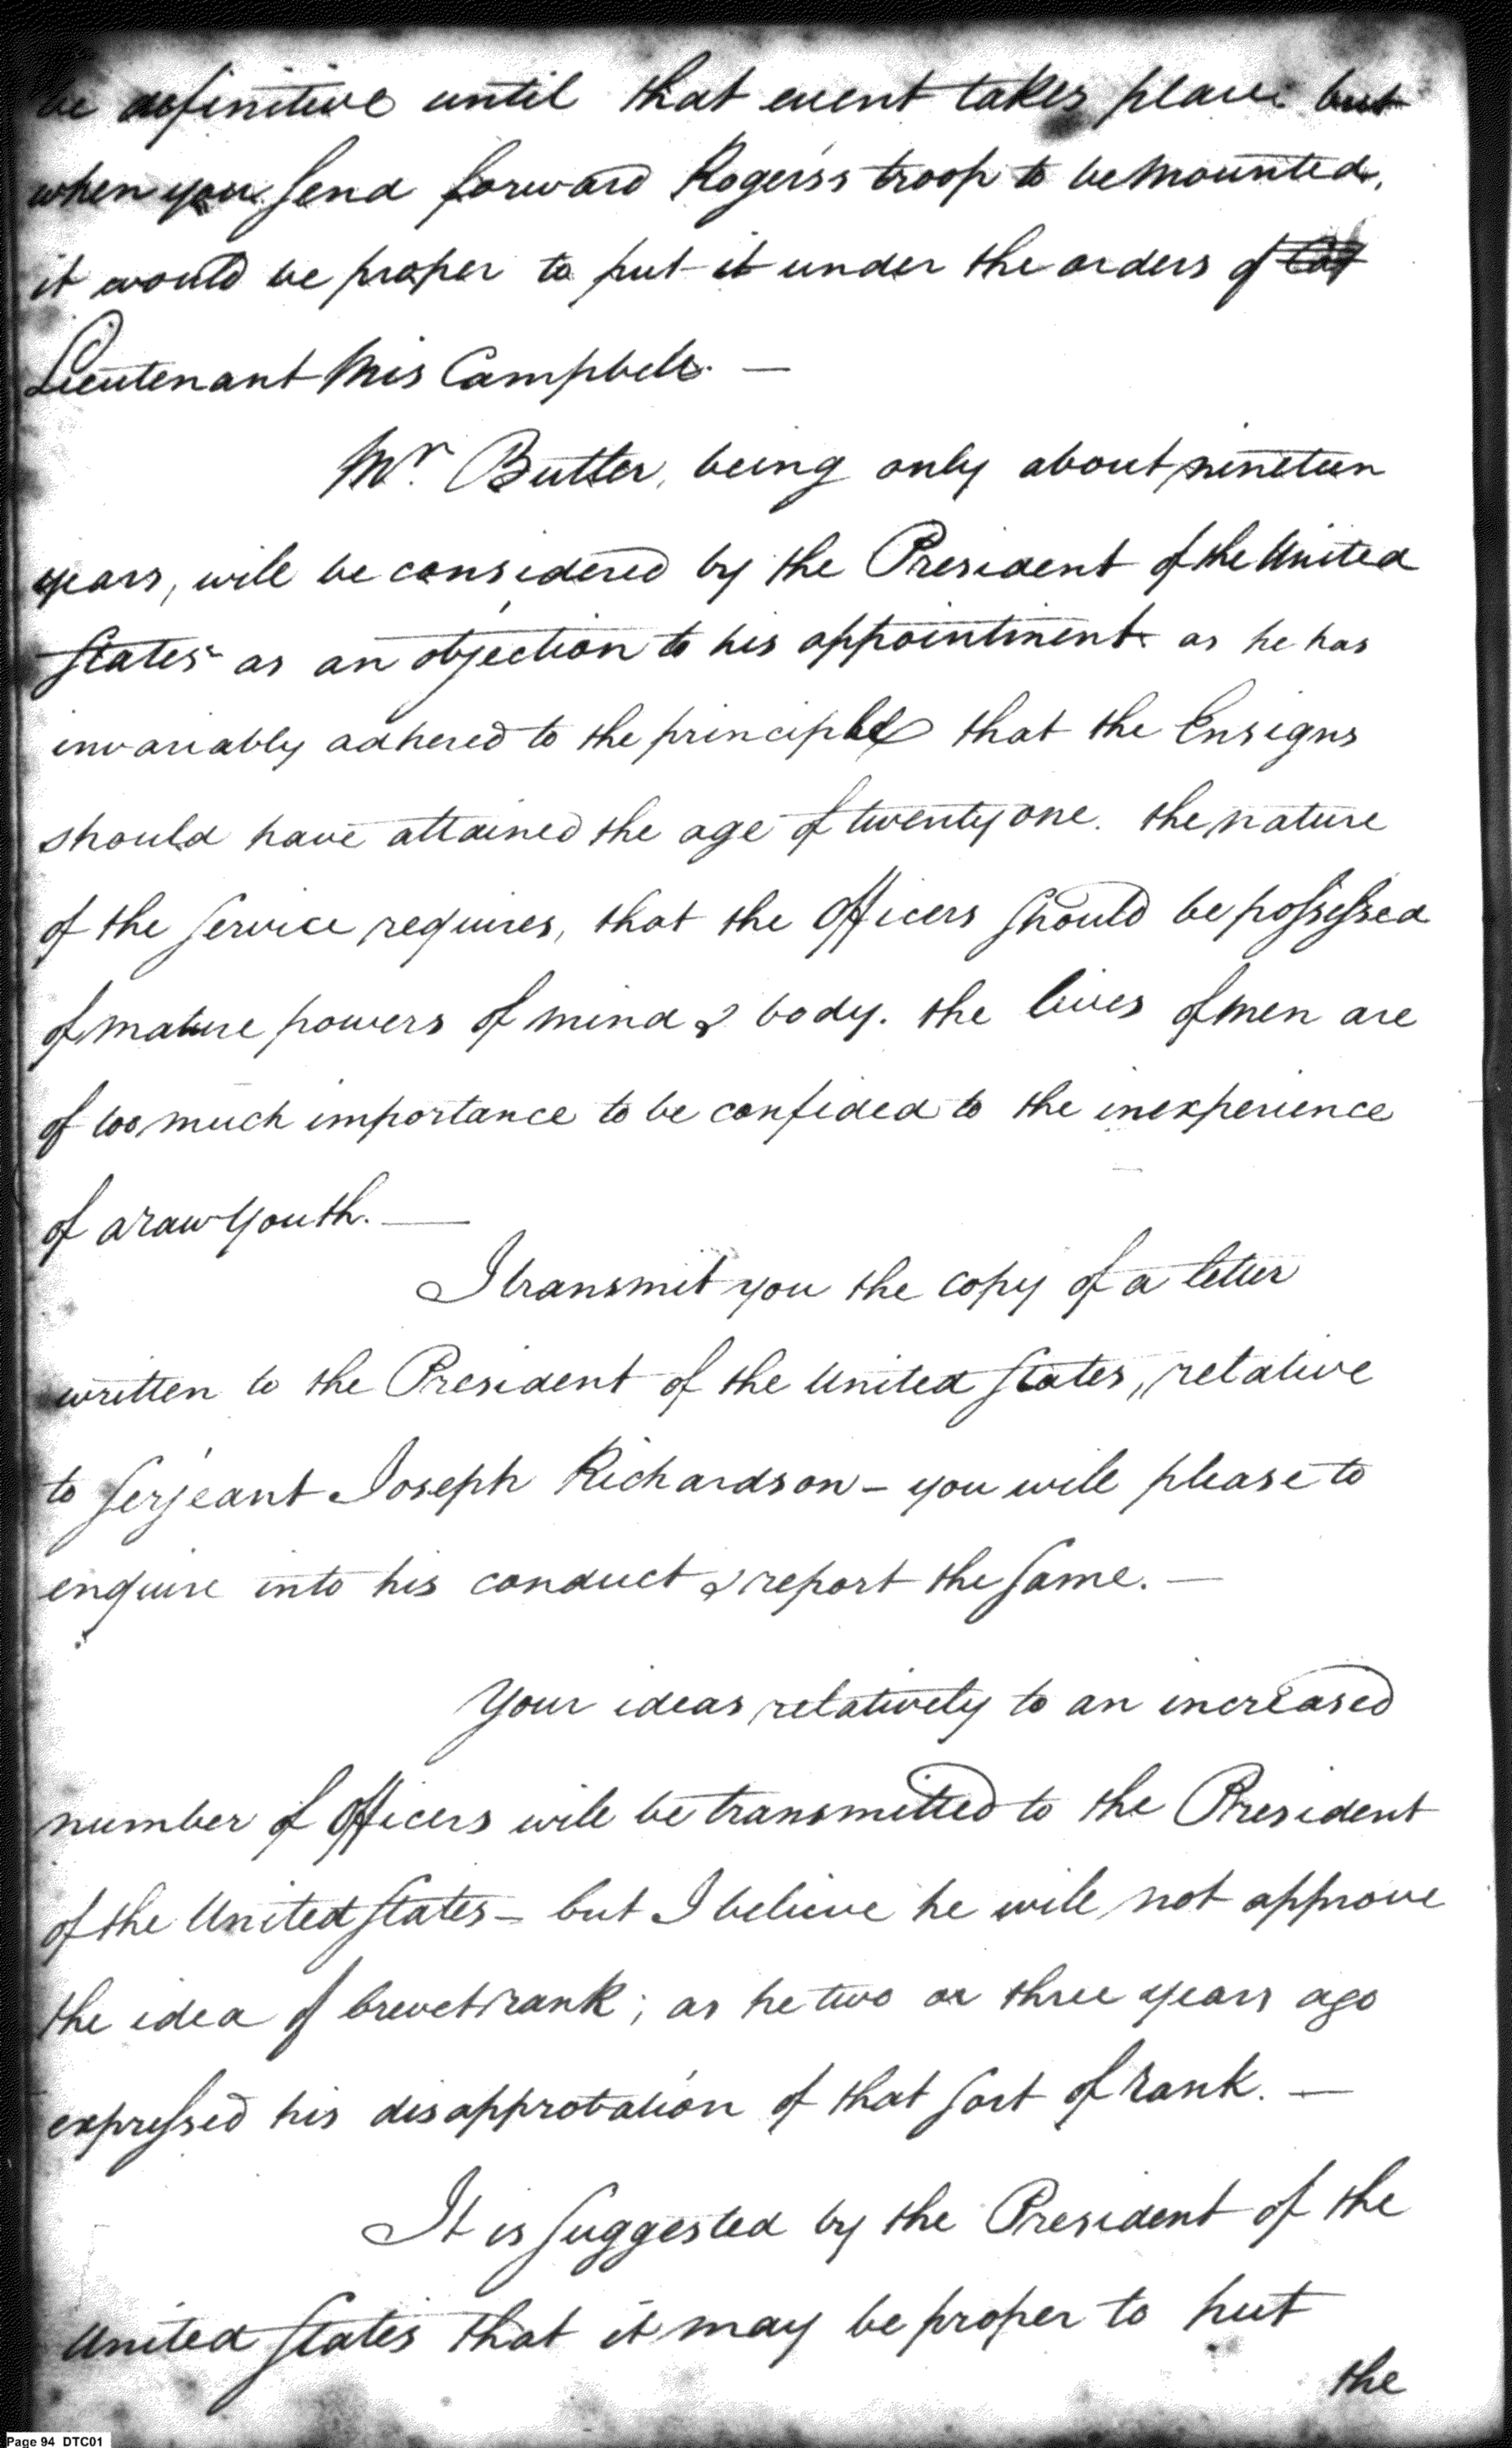 be definitive until that event takes place but
when you send forward Rogers's troop to be mounted,
it would be proper to put it under the orders of
Lieutenant Mis Campbell. —
Mr. Butler, being only about nineteen
years, will be considered by the President of the United
States as an objection to his appointment. as he has
invariably adhered to the principle that the Ensigns
should have attained the age of twenty one. the nature
of the service requires, that the Officers should be possessed
of mature powers of mind & body. the lives of men are
of too much importance to be confided to the inexperience
of a raw Youth. —
I transmit you the copy of a letter
written to the President of the United States, relative
to Serjeant Joseph Richardson – you will please to
enquire into his conduct & report the same. —
Your ideas relatively to an increased
number of Officers will be transmitted to the President
of the United States – but I believe he will not approve
the idea of brevet rank; as he two or three years ago
expressed his disapprobation of that sort of rank. —
It is suggested by the President of the
United States that it may be proper to put
the
Page 94 DTC01